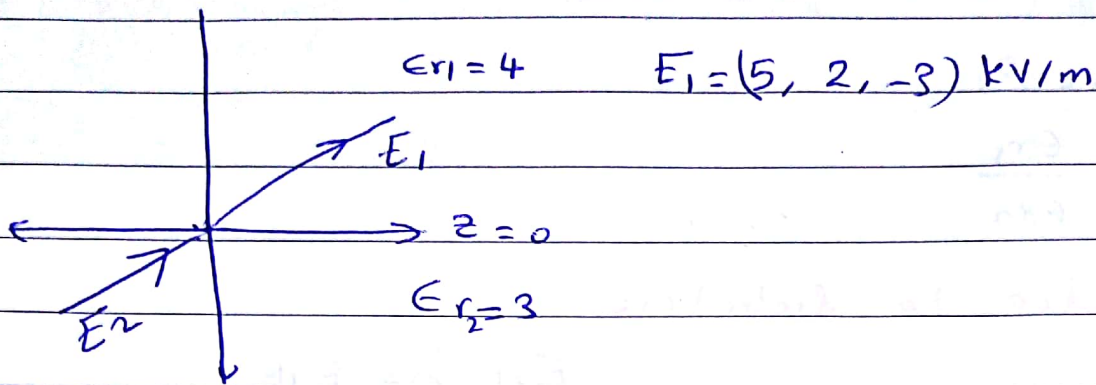 εr₁ = 4 E₁ = (5, 2, -3) kV/m
E₁
z = 0
εr₂ = 3
E2